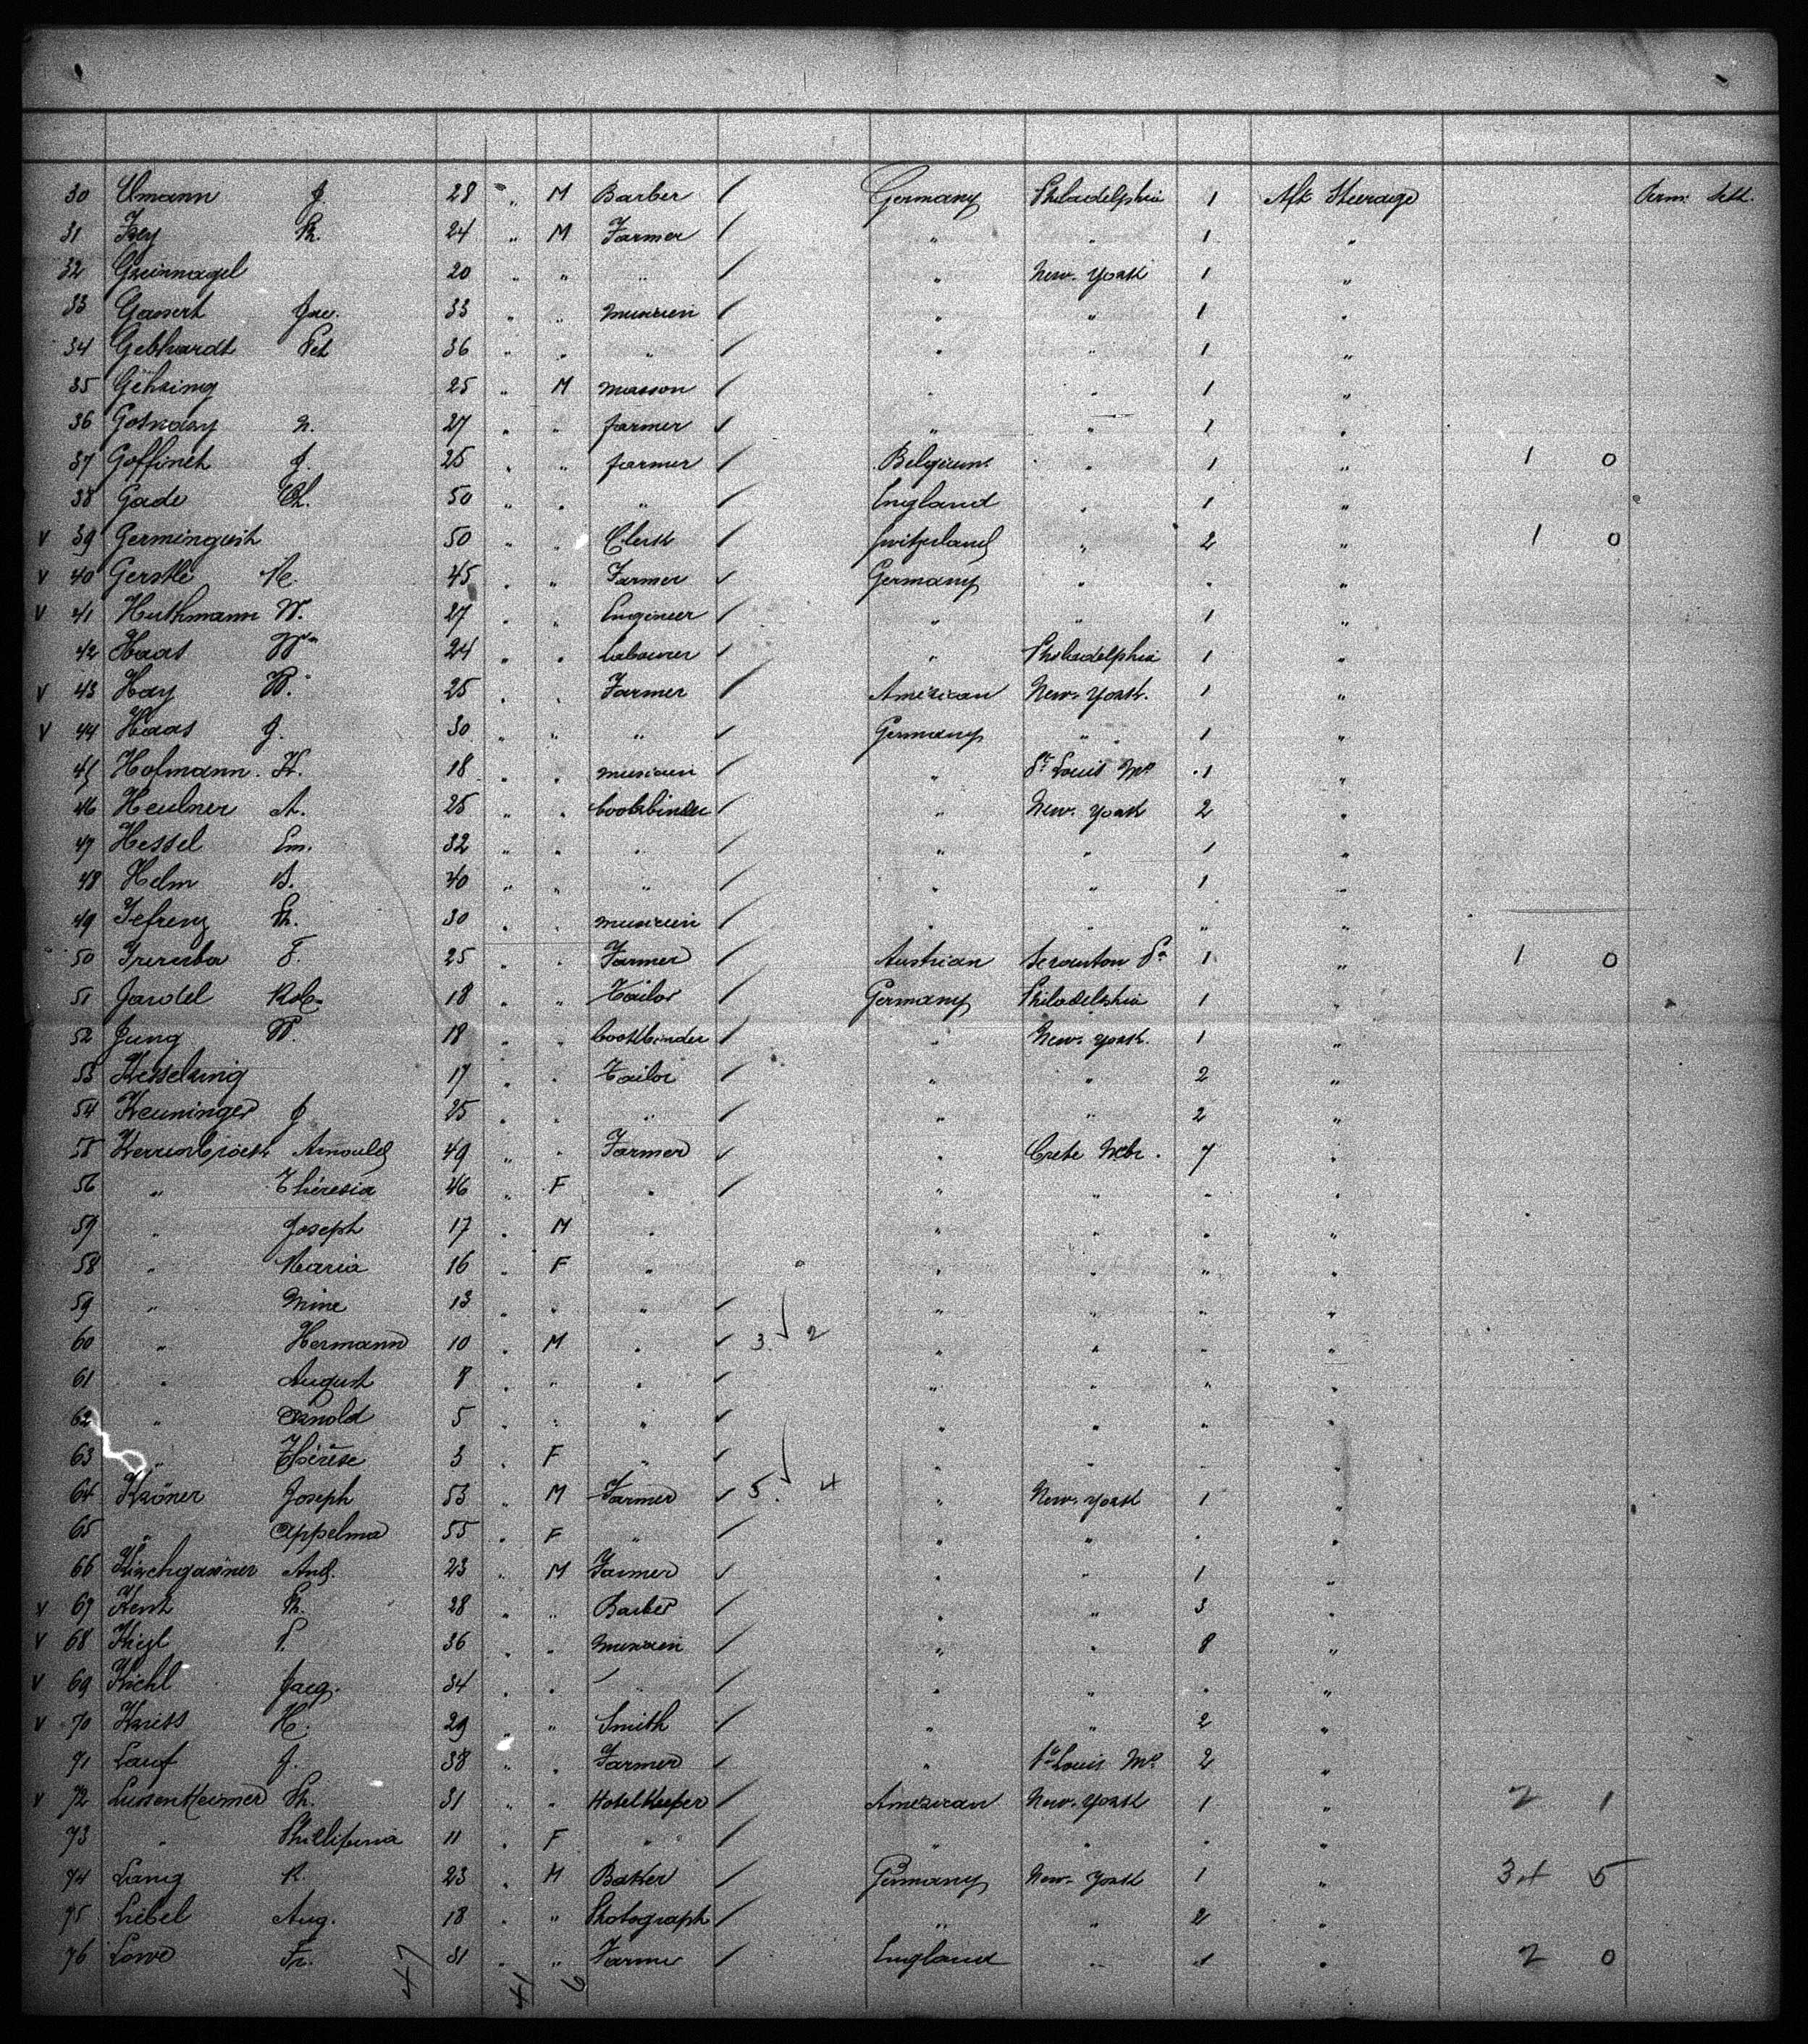 30 Ulmann J. 28 " M Barber / Germany Philadelphia 1 Aft Steerage Perm. Sett.
31 Frey Ph. 24 " M Farmer / " " 1 "
32 Greinnagel 20 " " " / " New-York 1 "
33 Gansert Jac. 33 " " musicien / " " 1 "
34 Gebhardt Pet 36 " " " / " " 1 "
35 Gehring 25 " M masson / " " 1 "
36 27 " " farmer / " " 1 "
37 Goffinet J. 25 " " farmer / Belgium " 1 " 1 0
38 Gade Ch. 50 " " " / England " 1 "
v 39 50 " " Clerk / Switzerland " 2 " 1 0
v 40 Gerstle M. 45 " " Farmer / Germany " " "
v 41 Huthmann W. 27 " " Engineer / " " 1 "
42 Haas Wm 24 " " Labourer / " Philadelphia 1 "
v 43 Hay W. 25 " " Farmer / American New-York. 1 "
v 44 Haas J. 30 " " " / Germany " 1 "
45 Hofmann K. 18 " " musicien / " St. Louis Mo 1 "
46 Heulner A. 25 " " bookbinder / " New-York 2 "
47 Hessel Em. 32 " " " / " " 1 "
48 Helm B. 40 " " " / " " 1 "
49 Ph. 30 " " musicien / " " " "
50 F. 25 " " Farmer / Austrian Scranton Pa 1 " 1 0
51 Jandel Rob. 18 " " Tailor / Germany Philadelphia 1 "
52 Jung W. 18 " " bookbinder / " New-York. 1 "
53 Kesselring 17 " " Tailor / " " 2 "
54 Kreuninger J 25 " " " / " " 2 "
55 Arnould 49 " " Farmer / " Crete Nebr. 7 "
56 " Théresia 46 " F " / " " " "
57 " Joseph 17 " M " " " " "
58 " Maria 16 " F " " " " "
59 " Mine 13 " " " / " " " "
60 " Hermann 10 " M " / 3. 2 " " " "
61 " August 8 " " " / " " " "
62 " Arnold 5 " " " / " " " "
63 " Thérèse 3 " F " / " " " "
64 Kröner Joseph 53 " M Farmer / 5. 4 " New-York 1 "
65 " Appelma 55 " F " / " " " "
66 Kirchgassner And. 23 " M Farmer / " " 1 "
v 67 Kent Ph. 28 " " Barber / " " 3 "
v 68 P. 36 " " musicien / " " 8 "
v 69 Kiehl Jacq. 34 " " " / " " " "
v 70 Kriess H. 29 " " Smith / " " 2 "
71 Lauf J. 38 " " Farmer / " St. Louis Mo 2 "
v 72 Ph. 31 " " Hotelkeeper / American New-York 1 " 2 1
73 " Phillipina 11 " F " / " " " "
74 Lang K. 23 " M Baker / Germany New-York 1 " 34 5
75 Liebel Aug. 18 " " Photograph / " " 2 "
76 Lowe Fr. 31 " " Farmer / England " 1 " 2 0
47 41 6